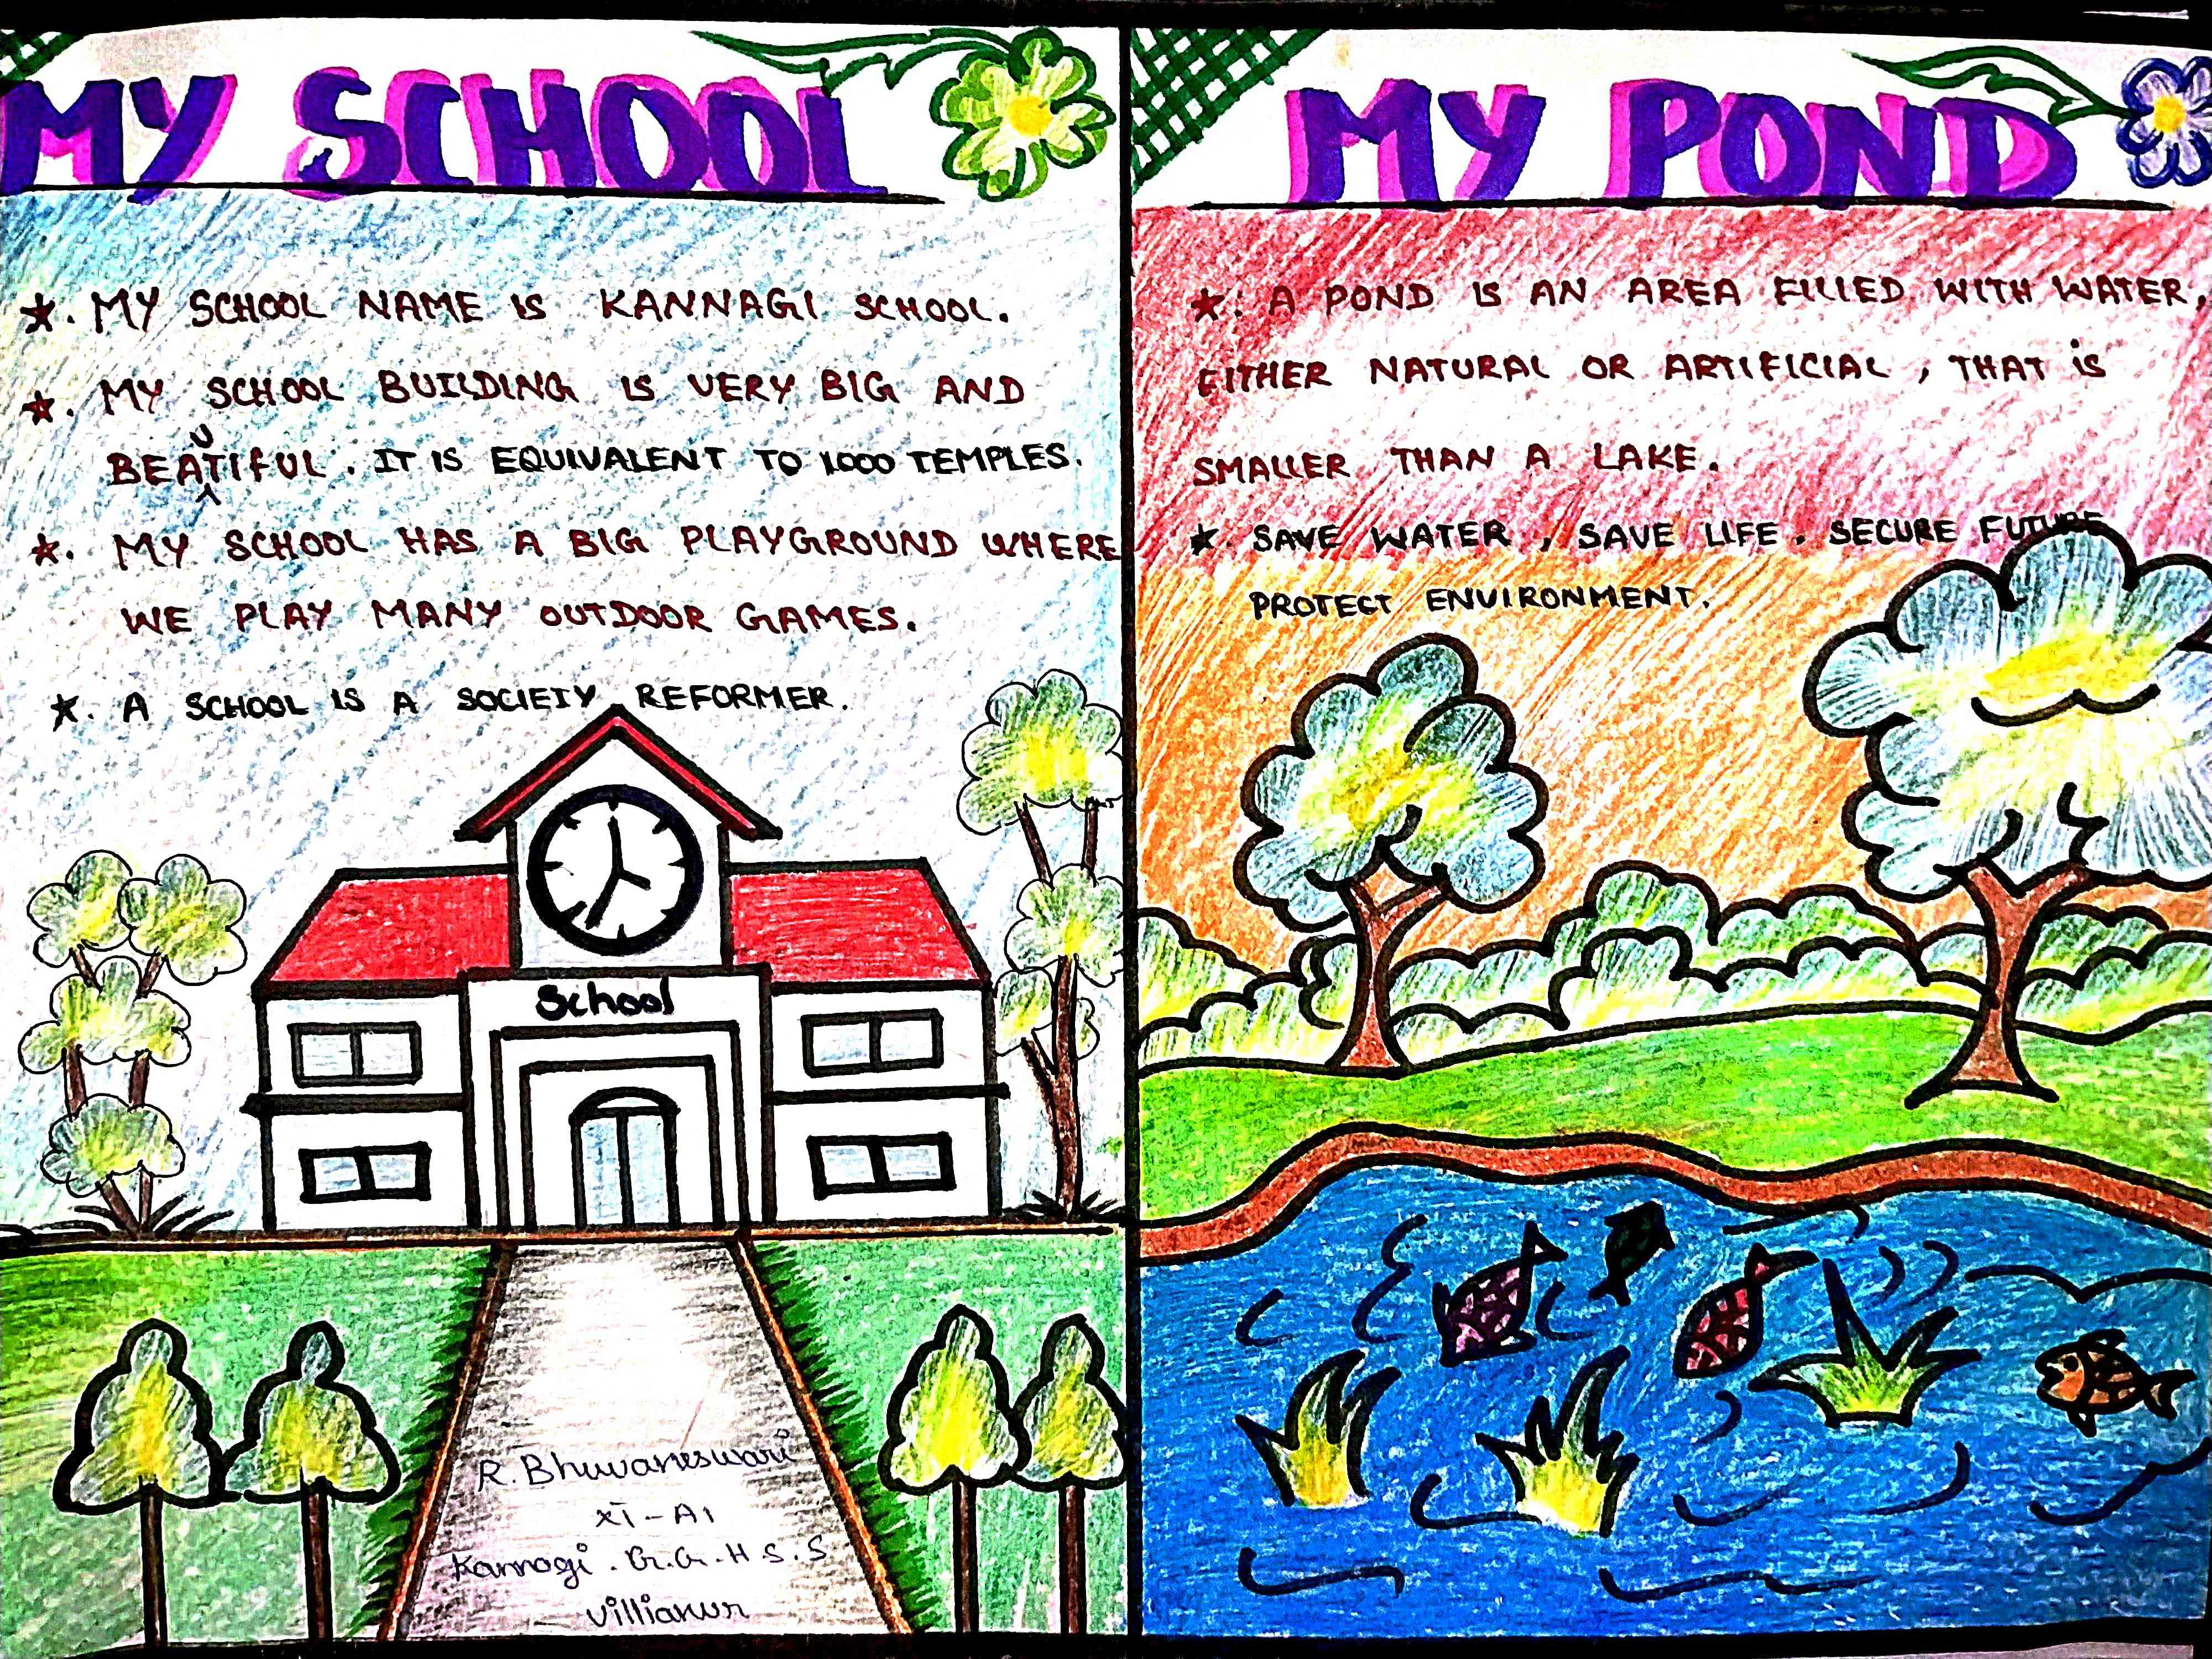 MY SCHOOL
★. MY SCHOOL NAME IS KANNAGI SCHOOL.
★. MY SCHOOL BUILDING IS VERY BIG AND
BEAUTIFUL. IT IS EQUIVALENT TO 1000 TEMPLES.
★. MY SCHOOL HAS A BIG PLAYGROUND WHERE
WE PLAY MANY OUTDOOR GAMES.
★. A SCHOOL IS A SOCIETY REFORMER.
School
R. Bhuvaneswari
XI - A1
Kannagi . G.G. H.S.S
Villianur
MY POND
★. A POND IS AN AREA FILLED WITH WATER,
EITHER NATURAL OR ARTIFICIAL, THAT IS
SMALLER THAN A LAKE.
★. SAVE WATER, SAVE LIFE. SECURE FUTURE
PROTECT ENVIRONMENT.